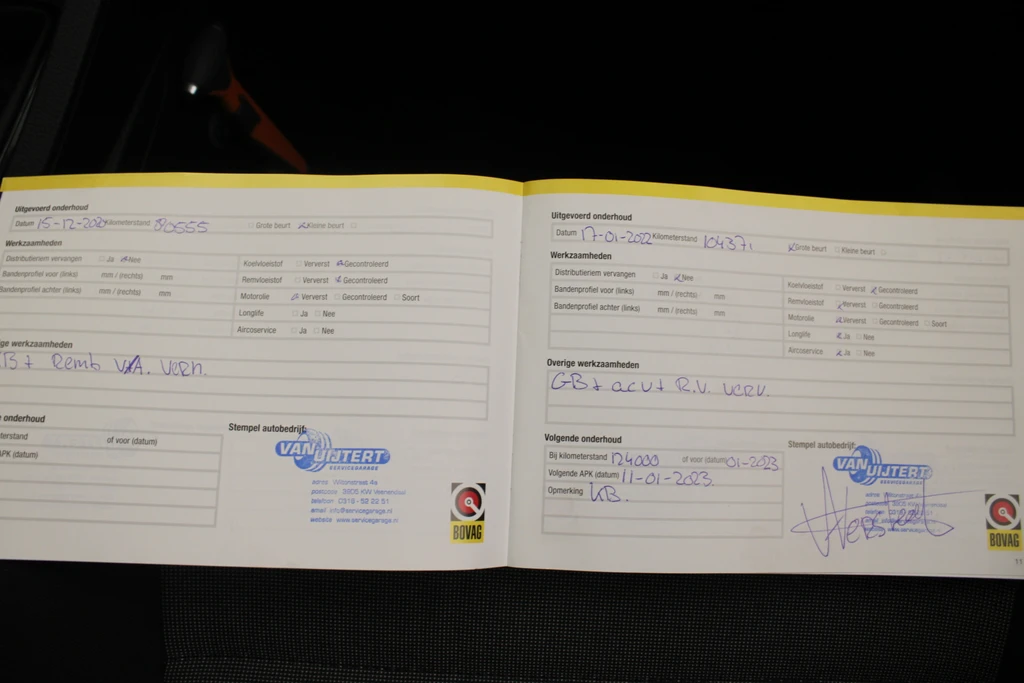 Uitgevoerd onderhoud
Datum 15-12-2020 Kilometerstand 80555 Grote beurt Kleine beurt
Werkzaamheden
Distributieriem vervangen Ja Nee
Bandenprofiel voor (links) mm / (rechts) mm
Bandenprofiel achter (links) mm / (rechts) mm
Koelvloeistof Ververst Gecontroleerd
Remvloeistof Ververst Gecontroleerd
Motorolie Ververst Gecontroleerd Soort
Longlife Ja Nee
Aircoservice Ja Nee
ige werkzaamheden
B + Remb V+A. Vern.
e onderhoud
terstand of voor (datum)
APK (datum)
Stempel autobedrijf:
VAN UIJTERT
SERVICEGARAGE
adres Wiltonstraat 4a
postcode 3905 KW Veenendaal
telefoon 0318 - 52 22 51
email info@servicegarage.nl
website www.servicegarage.nl
BOVAG
Uitgevoerd onderhoud
Datum 17-01-2022 Kilometerstand 104371 Grote beurt Kleine beurt
Werkzaamheden
Distributieriem vervangen Ja Nee
Bandenprofiel voor (links) mm / (rechts) mm
Bandenprofiel achter (links) mm / (rechts) mm
Koelvloeistof Ververst Gecontroleerd
Remvloeistof Ververst Gecontroleerd
Motorolie Ververst Gecontroleerd Soort
Longlife Ja Nee
Aircoservice Ja Nee
Overige werkzaamheden
GB + acu + R.V. verv.
Volgende onderhoud
Bij kilometerstand 124000 of voor (datum) 01-2023
Volgende APK (datum) 11-01-2023.
Opmerking KB.
Stempel autobedrijf:
VAN UIJTERT
SERVICEGARAGE
adres Wiltonstraat
postcode 3905 KW Veenendaal
telefoon
email
website
BOVAG
11